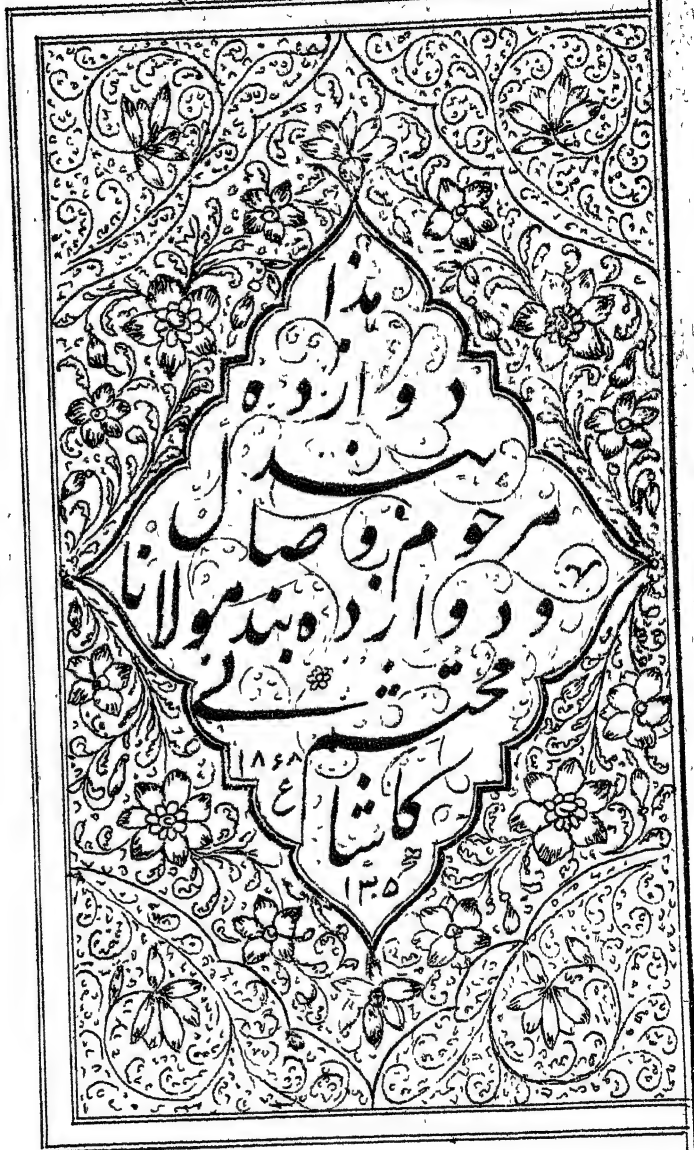 هذا
دوازده
بند
مرحوم وصال
و دوازده بند مولانا
محتشم
کاشانی
۱۸۶۸
ع
۱۳۰۵